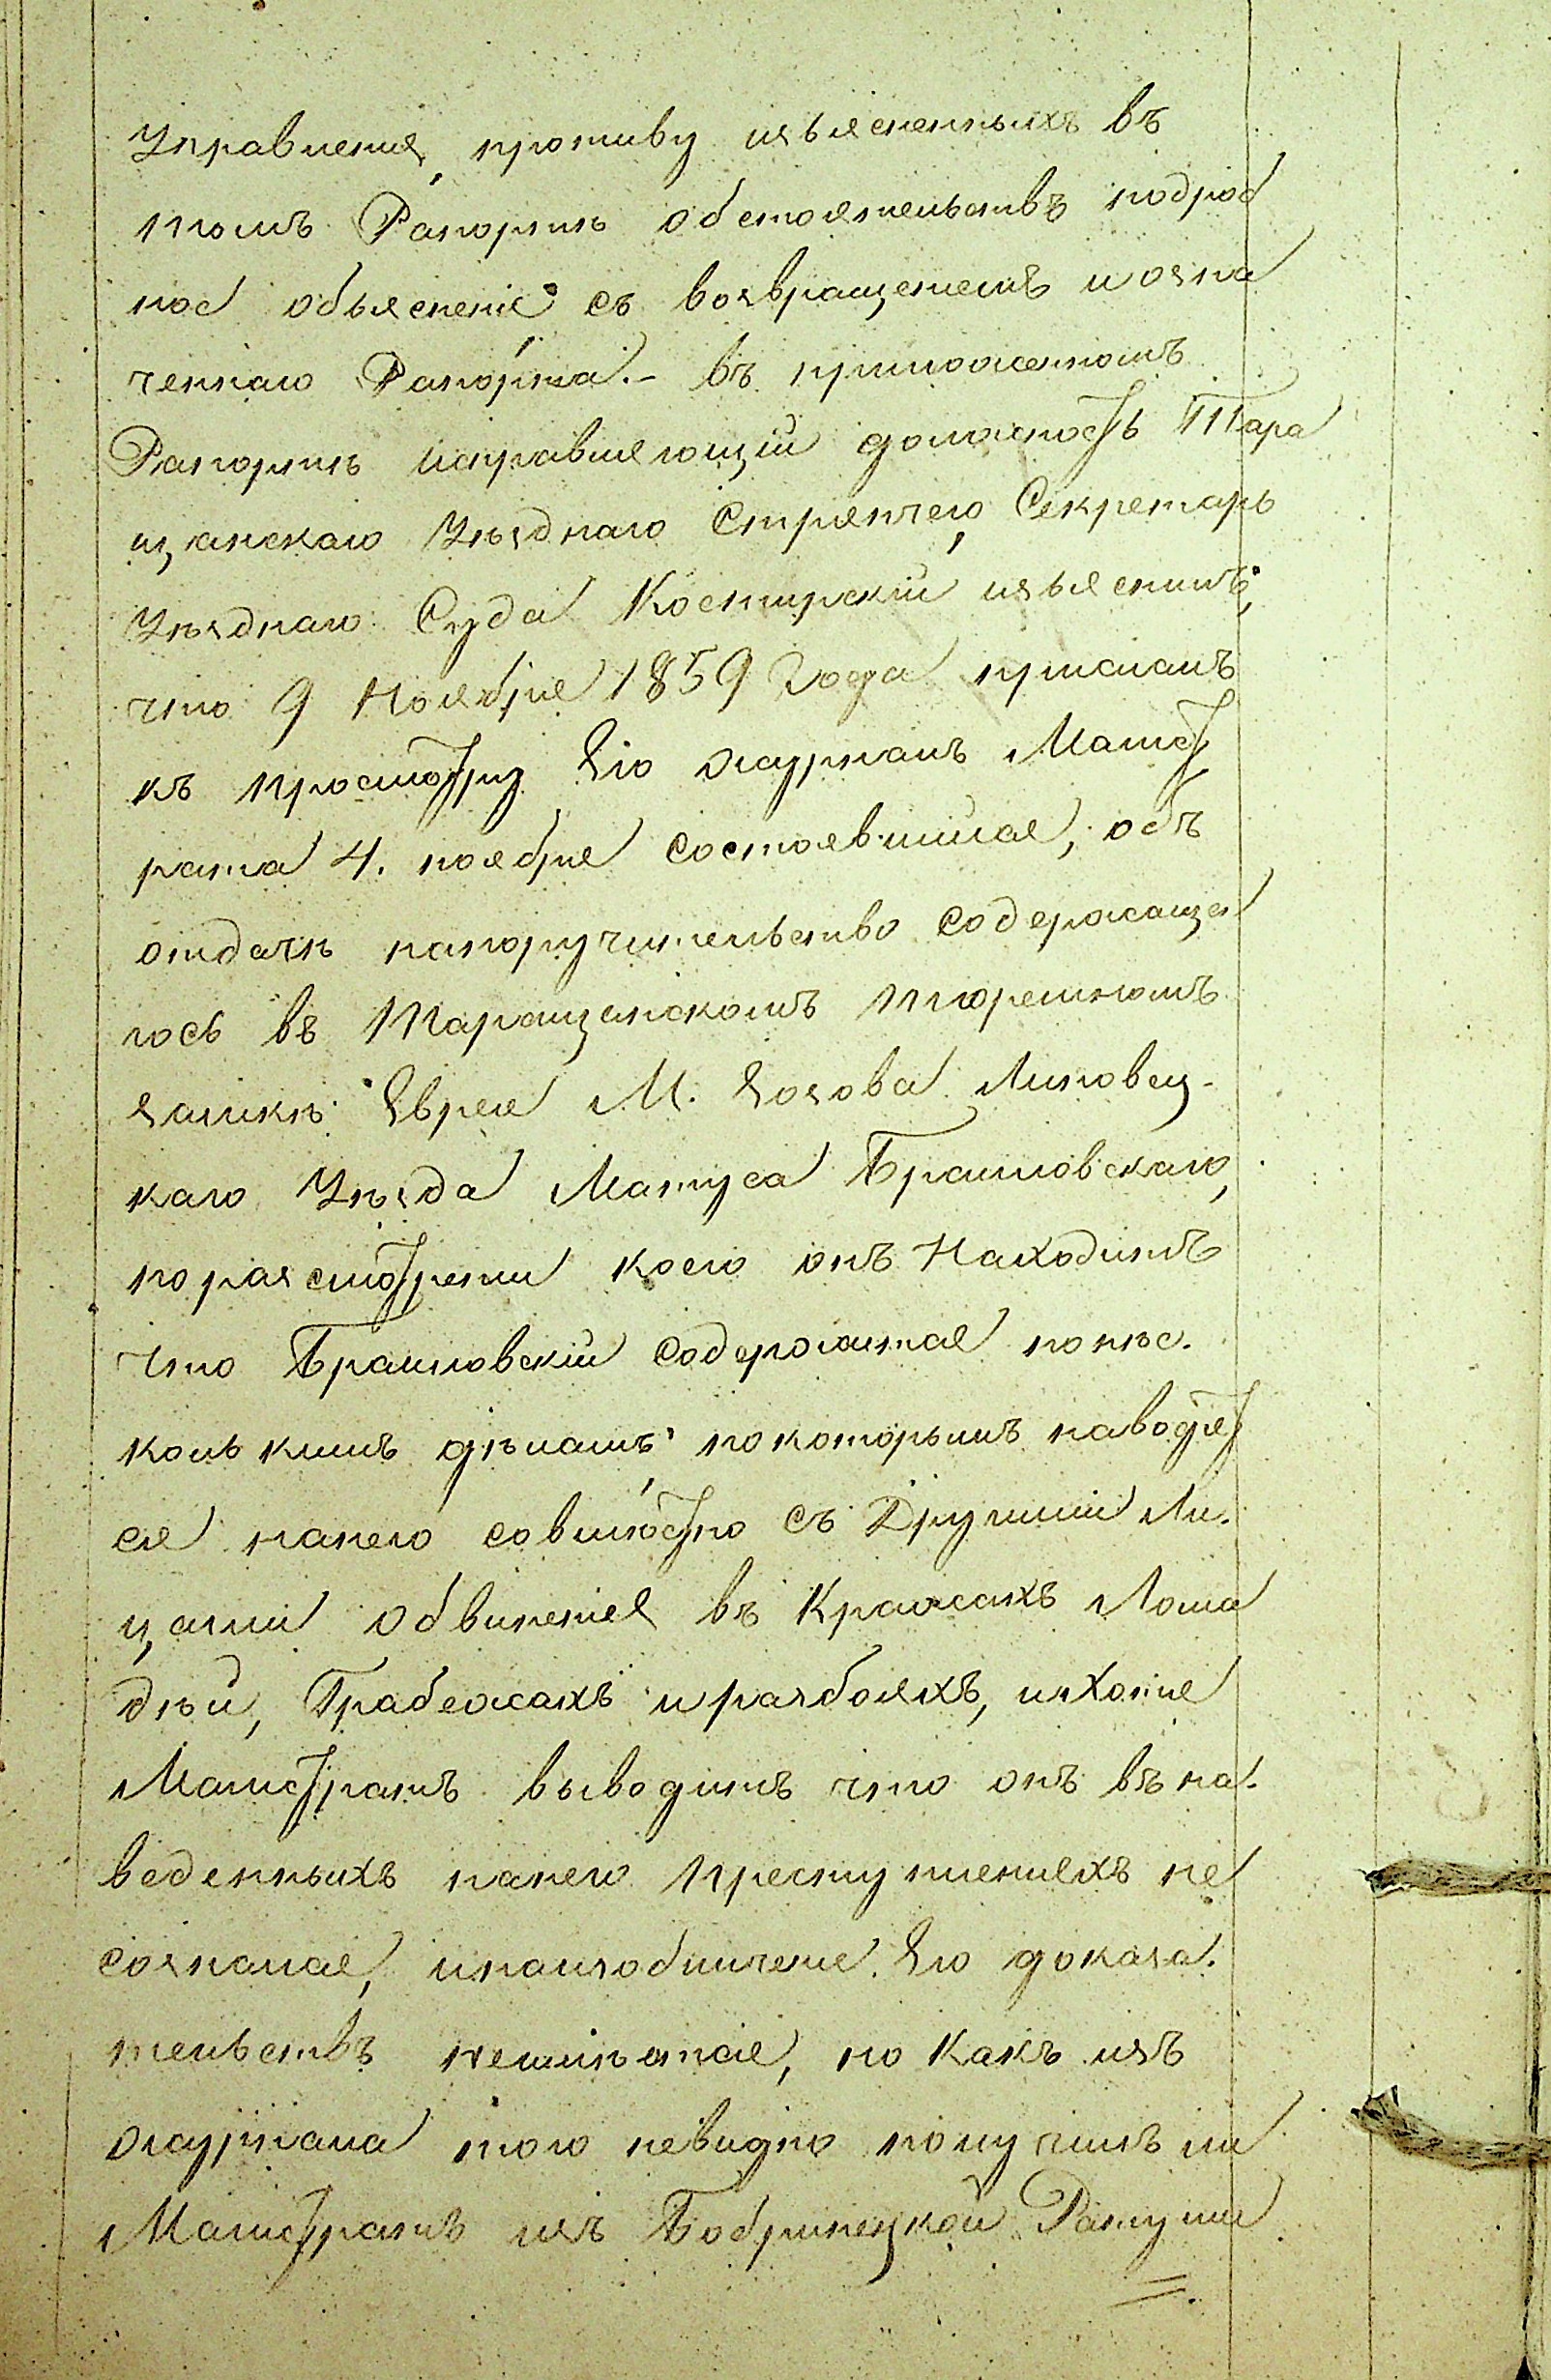 Управления, противу изъясненныхъ въ
томъ Рапортѣ обстоятельствъ подроб
ное объясненіе съ возвращеніемъ и озна
ченнаго Рапорта. – въ приложенномъ
Рапортѣ исправляющій должность Тара
щанскаго Уѣзднаго Стряпчего, Секретарь
Уѣзднаго Суда Костирскій изъяснилъ,
что 9 Ноября 1859 Года присланъ
къ просмотру Его журналъ Магист
рата 4. ноября состоявшийся, объ
отдачѣ напоручительство содержаща
гося въ Таращанскомъ тюремномъ
замкѣ Еврея М. Зозова Липовец-
каго Уѣзда Матуса Браиловскаго,
поразсмотрении коего онъ Находитъ
что Браиловскій содержится понѣс.
колькимъ дѣламъ, покоторымъ наводят
ся нанего совмѣстно съ Другими Ли.
цами обвиненія въ Кражахъ Лоша
дѣй, Грабежахъ и разбояхъ, ихотя
Магистратъ выводитъ что онъ въ на.
веденныхъ нанего преступленияхъ не
сознался, инаизобличение Его доказа.
тельствъ неимѣется, но Какъ изъ
журнала того невидно получилъ ли
Магистратъ изъ Бобринецкой Ратуши